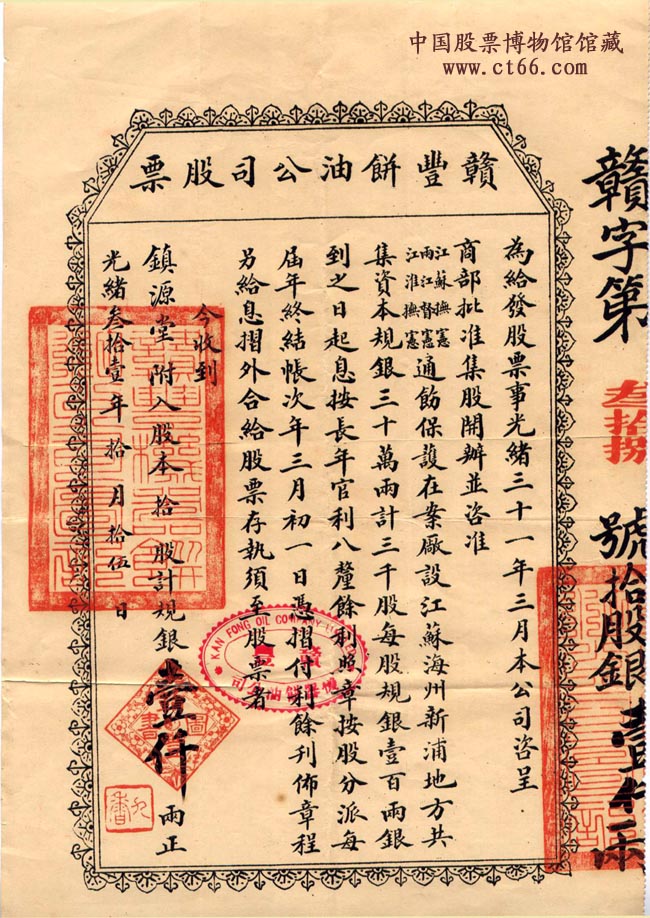 中国股票博物馆馆藏
www.ct66.com
贛豐餅油公司股票
為給發股票事光緒三十一年三月本公司咨呈
商部批准集股開辦並咨准
江蘇撫憲
兩江督憲
江淮撫憲
通飭保護在案廠設江蘇海州新浦地方共
集資本規銀三十萬兩計三千股每股規銀壹百兩銀
到之日起息按長年官利八釐餘利照章按股分派每
屆年終結帳次年三月初一日憑摺付利餘利佈章程
另給息摺外合給股票存執須至股票者
今收到
鎮源堂附入股本拾股計規銀壹仟兩正
光緒叁拾壹年拾月拾伍日
贛字第叁拾捌號拾股銀壹仟兩
KAN FONG OIL COMPANY
贛豐